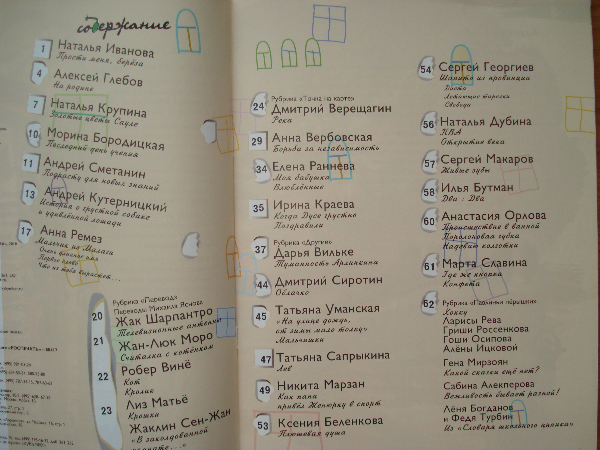 содержание
1
Наталья Иванова
Прости меня, берёза
4
Алексей Глебов
На родине
7
Наталья Крупина
Золотые цветы Сауле
10
Морина Бородицкая
Последний день учения
11
Андрей Сметанин
Подрасту для новых знаний
13
Андрей Кутерницкий
История о грустной собаке
и удивлённой лошади
17
Анна Ремез
Мальчик из Малаги
Очень длинное имя
Первое слово
Что из тебя вырастет...
Рубрика «Перевод»
Переводы Михаила Яснова
20
Жак Шарпантро
Телевизионные антенны
21
Жан-Люк Моро
Считалка с котёнком
22
Робер Винё
Кот
Кролик
23
Лиз Матьё
Крошки
Жаклин Сен-Жан
«В заколдованной
24
Рубрика «Точка на карте»
Дмитрий Верещагин
Река
29
Анна Вербовская
Борьба за независимость
34
Елена Раннева
Моя бабушка
Влюблённые
35
Ирина Краева
Когда Дусе грустно
Поздравили
37
Рубрика «Другие»
Дарья Вильке
Туманность Арлекина
44
Дмитрий Сиротин
Облачко
45
Татьяна Уманская
«На улице дождь,
от зимы мало толку»
Мальчишки
47
Татьяна Сапрыкина
Лев
49
Никита Марзан
Как папа
привёз Жепюрку в спорт
53
Ксения Беленкова
Плюшевая душа
54
Сергей Георгиев
Шапито из провинции
Летающие тарелки
Свобода
56
Наталья Дубина
КВА
Открытия века
57
Сергей Макаров
Живые зубы
58
Илья Бутман
Два : Два
60
Анастасия Орлова
Происшествие в ванной
Поролоновая губка
Надоели колготки
61
Марта Славина
Где же кнопка
Конфета
62
Хокку
Ларисы Рева
Гриши Россенкова
Гоши Осипова
Алёны Ицковой
Гена Мирзоян
Какой сказки ещё нет?
Сабина Алекперова
Вежливость бывает разной!
Лёня Богданов
и Федя Турбин
Из «Словаря школьного циника»